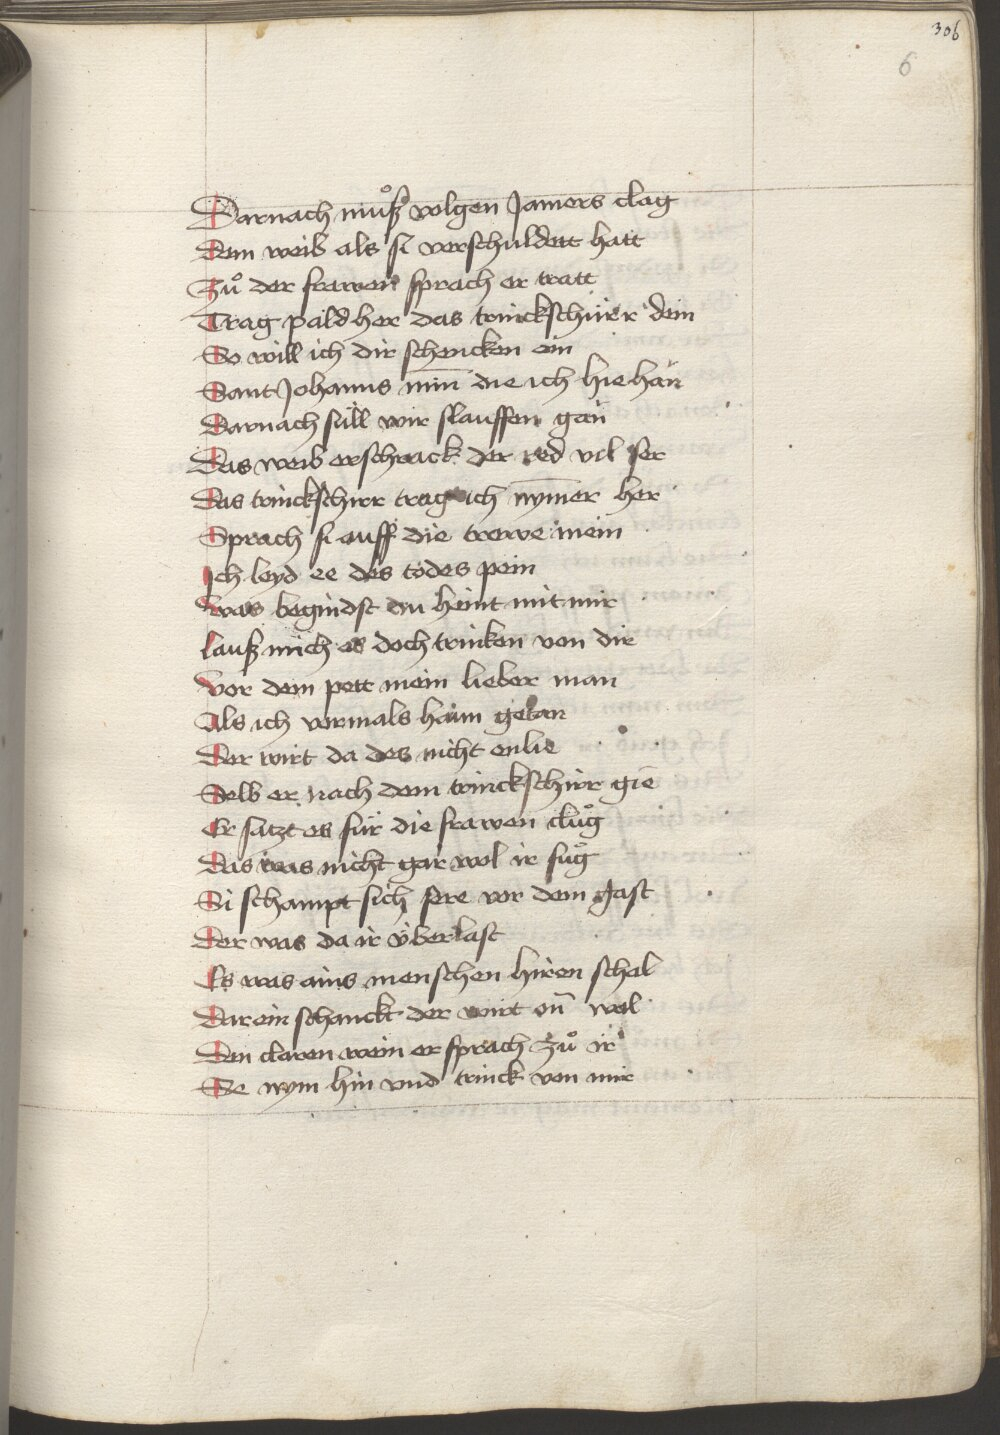 306
6
Darnach muͦß volgen Jamers clag
Dem weib als si verschuldett hatt
Zuͦ der frawen sprach er tratt
Trag pald her das trinckschirr dein
So will ich dir schencken ein
Sant Johanns min̄ die ich hie han
Darnach süll wir slauffen gan
Das weib erschrack der red vil ser
Das trinckschirr trag ich nym̄er her
Sprach si auff die trewe mein
Ich leyd ee des todes pein
Was begindst du heint mit mir
Lauß mich es doch trinken von dir
Vor dem pett mein lieber man
Als ich vormals haun getan
Der wirt da des nicht enlie
Selb er nach dem trinckschirr gie
Er satzt es für die frawen cluͦg
Das was nicht gar wol ir fuͦg
Si schampt sich sere vor dem gast
Der was da ir v̈berlast
Es was ains menschen hiren schal
Darein schanckt der wirt on̄ wal
Den claren wein er sprach zuͦ ir
Se nym hin vnd trinck von mir